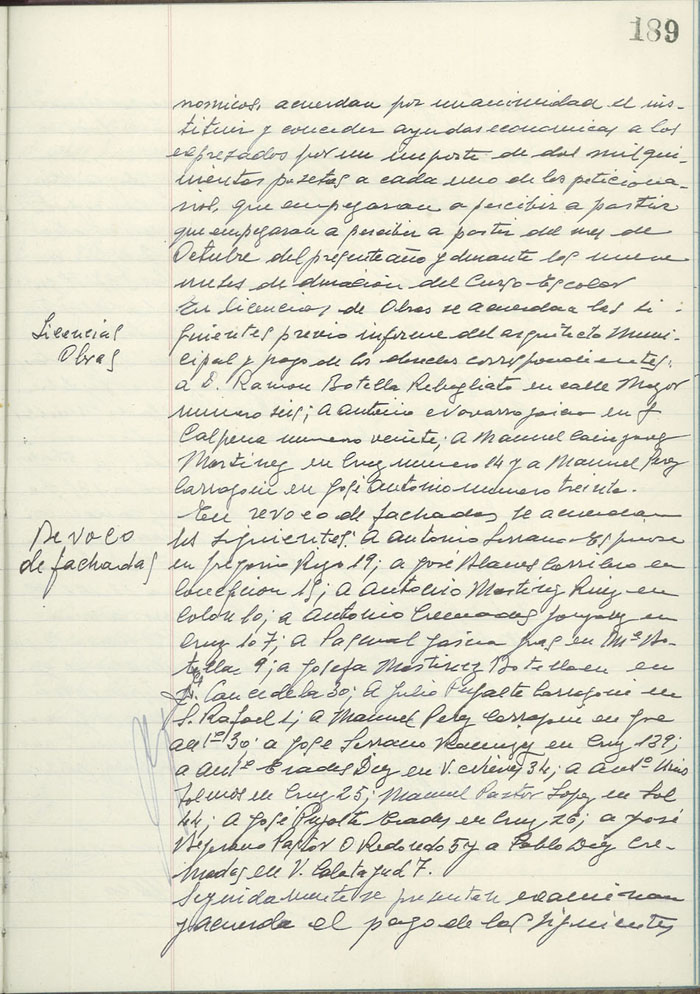 189
nomicos, acuerdan por unanimidad el ins-
tituir y conceder ayudas economicas a los
expresados por un importe de dos mil qui-
nientas pesetas a cada uno de los peticiona-
rios, que empezaran a percibir a partir
que empezaran a percibir a partir del mes de
Octubre del presente año y durante los nueve
meses de duración del Curso Escolar
Licencias
Obras
En licencias de Obras se acuerdan las si-
guientes previo informe del arquitecto Muni-
cipal y pago de los derechos correspondientes:
a D. Ramon Botella Rebagliato en calle Mayor
numero seis; a Antonio Navarro Garcia en J
Calpena numero veinte; a Manuel
Martinez en Cruz numero 14 y a Manuel Perez
Carragoni en José Antonio numero treinta.
Revoco
de fachadas
En revoco de fachadas se acuerdan
los siguientes: a Antonio Serrano
en Gregorio Rizo 19; a José Blanes Carribero en
Concepcion 15; a Antonio Martinez Ruiz en
Colón 10; a Antonio Cremades Gonzalez en
Cruz 107; a Pascual Garcia en Mª Bo-
tella 9; a Josefa Martinez Botella en
Candela 30; a Julio Pujalte Carragoni en
S. Rafael a Manuel Perez Carragoni en
30; a Jose Serrano en Cruz 139;
a Antº Erades Diez en V. 34; a Antº
en Cruz 25; Manuel Pastor Lopez en Sol
44; a José Pujalte Erades en Cruz 26; a José
Pastor O Redondo 5 y a Pablo Diez Cre-
mades en V. Calatayud 7.
Seguidamente se presentan examinan
y acuerda el pago de las siguientes